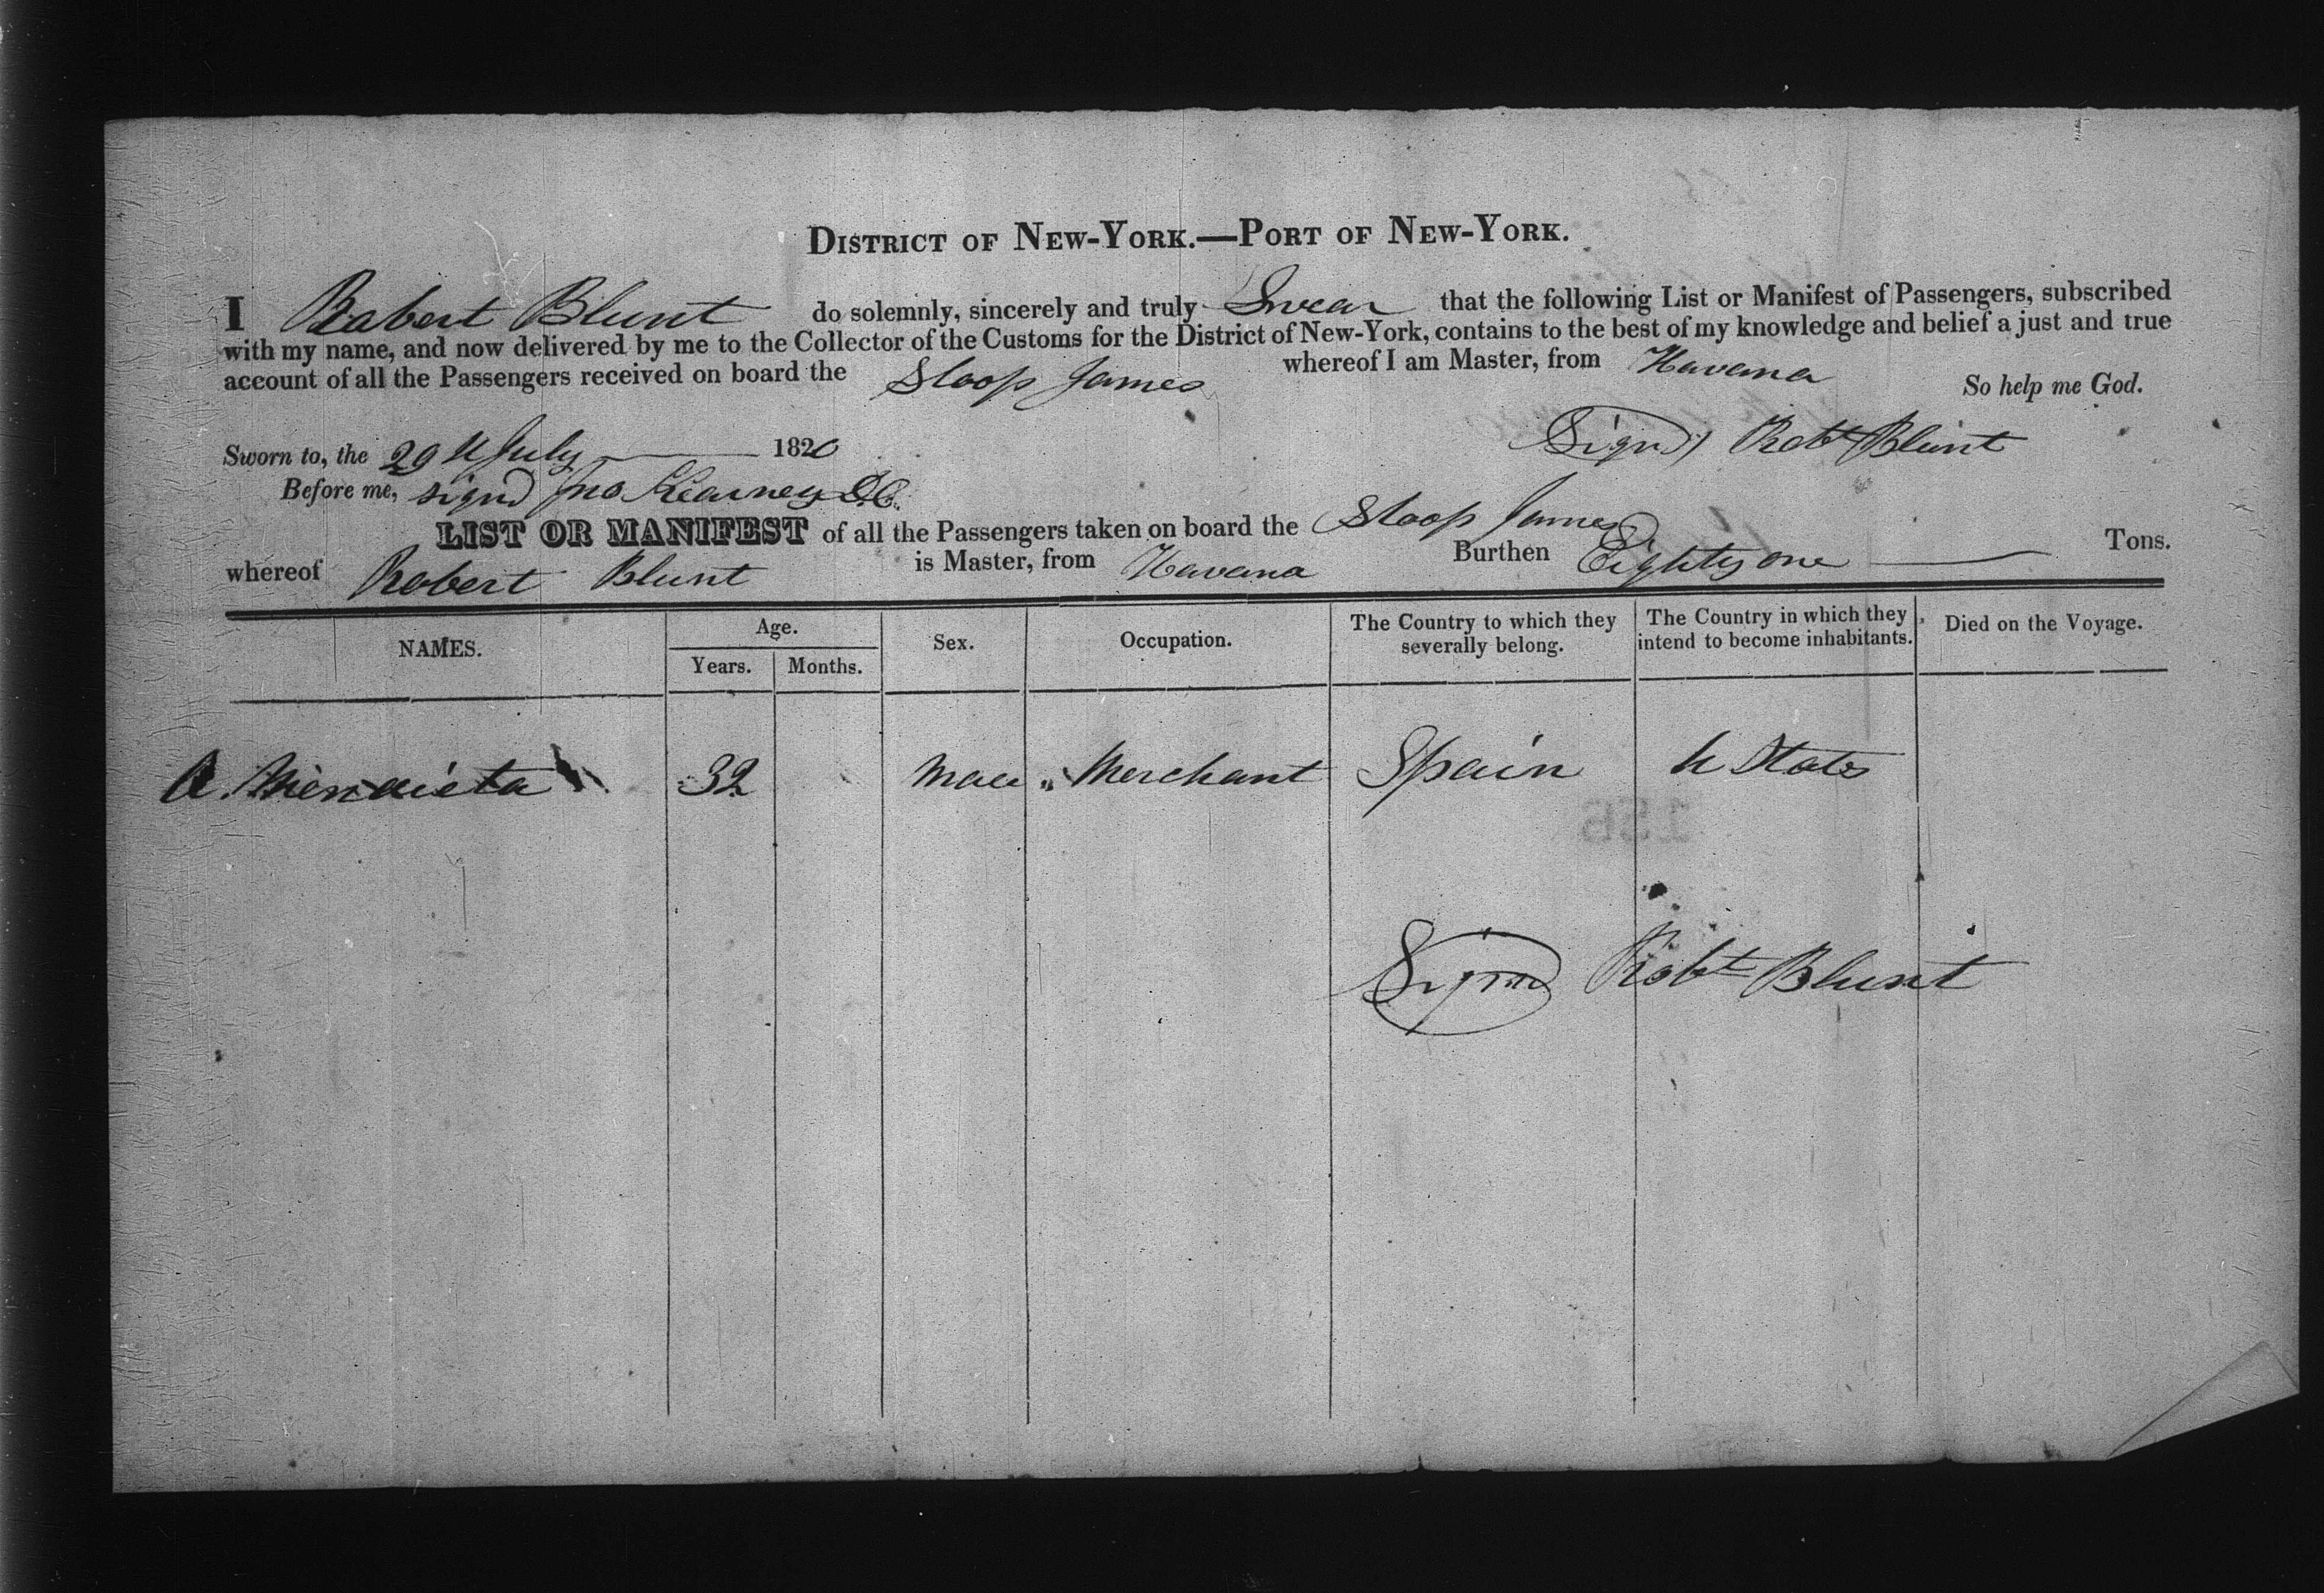 DISTRICT OF NEW-YORK.—PORT OF NEW-YORK.
I Robert Blunt do solemnly, sincerely and truly Swear that the following List or Manifest of Passengers, subscribed
with my name, and now delivered by me to the Collector of the Customs for the District of New-York, contains to the best of my knowledge and belief a just and true
account of all the Passengers received on board the Sloop James whereof I am Master, from Havana
So help me God.
Sworn to, the 29th July 1820 Signd Robt Blunt
Before me, signd Jno Kearney D.C.
LIST OR MANIFEST of all the Passengers taken on board the Sloop James
whereof Robert Blunt is Master, from Havana Burthen Eighty one Tons.
NAMES. Age. Years. Months. Sex. Occupation. The Country to which they severally belong. The Country in which they intend to become inhabitants. Died on the Voyage.
A. 32 Male " Merchant Spain U States
Signd Robt Blunt